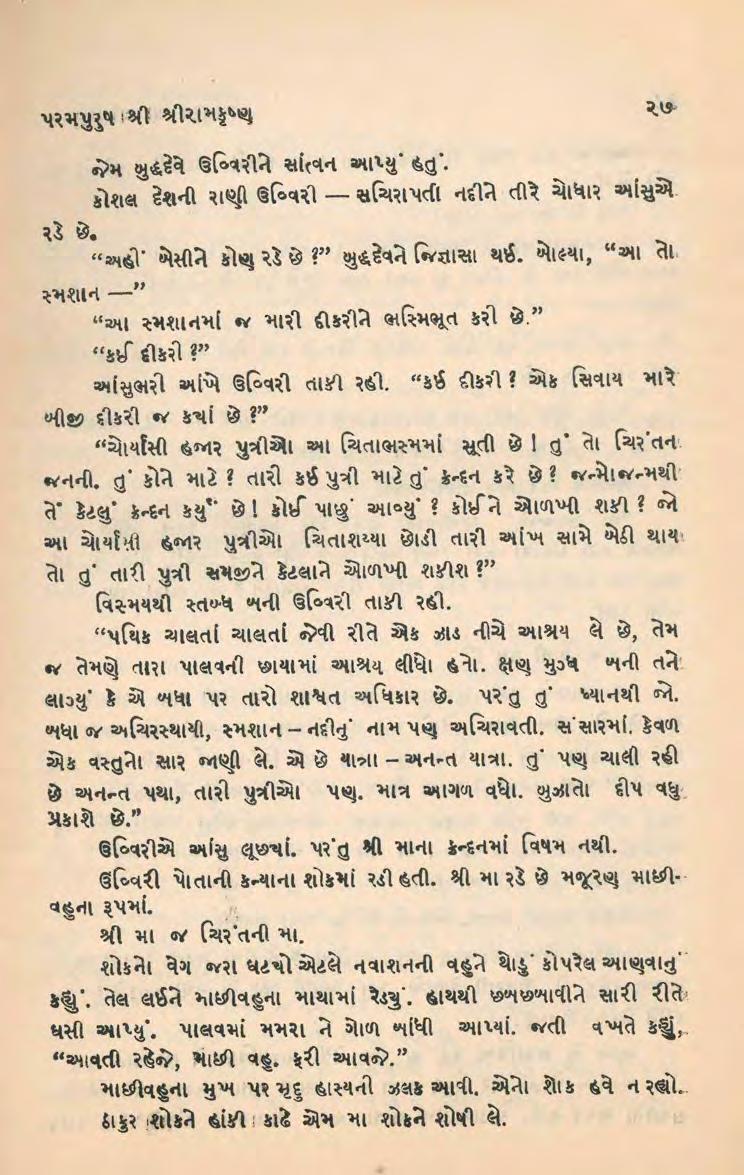 પરમપુરુષ શ્રી શ્રીરામકૃષ્ણ ૨૭
જેમ બુદ્ધદેવે ઉબ્વિરીને સાંત્વન આપ્યું હતું.
કોશલ દેશની રાણી ઉબ્વિરી — સચિરાપતી નદીને તીરે ચોધાર આંસુએ
રડે છે.
“અહીં બેસીને કોણ રડે છે ?” બુદ્ધદેવને જિજ્ઞાસા થઈ. બોલ્યા, “આ તો
સ્મશાન —”
“આ સ્મશાનમાં જ મારી દીકરીને ભસ્મિભૂત કરી છે.”
“કઈ દીકરી ?”
આંસુભરી આંખે ઉબ્વિરી તાકી રહી. “કઈ દીકરી ? એક સિવાય મારે
બીજી દીકરી જ ક્યાં છે ?”
“ચોર્યાસી હજાર પુત્રીઓ આ ચિતાભસ્મમાં સૂતી છે ! તું તો ચિરંતન
જનની. તું કોને માટે ? તારી કઈ પુત્રી માટે તું ક્રન્દન કરે છે ? જન્મોજન્મથી
તેં કેટલું ક્રન્દન કર્યું છે ! કોઈ પાછું આવ્યું ? કોઈને ઓળખી શકી ? જો
આ ચોર્યાસી હજાર પુત્રીઓ ચિતાશય્યા છોડી તારી આંખ સામે બેઠી થાય
તો તું તારી પુત્રી સમજીને કેટલાને ઓળખી શકીશ ?”
વિસ્મયથી સ્તબ્ધ બની ઉબ્વિરી તાકી રહી.
“પથિક ચાલતાં ચાલતાં જેવી રીતે એક ઝાડ નીચે આશ્રય લે છે, તેમ
જ તેમણે તારા પાલવની છાયામાં આશ્રય લીધો હતો. ક્ષણ મુગ્ધ બની તને
લાગ્યું કે એ બધા પર તારો શાશ્વત અધિકાર છે. પરંતુ તું ધ્યાનથી જો.
બધા જ અચિરસ્થાયી, સ્મશાન – નદીનું નામ પણ અચિરાવતી. સંસારમાં. કેવળ
એક વસ્તુનો સાર જાણી લે. એ છે યાત્રા – અનન્ત યાત્રા. તું પણ ચાલી રહી
છે અનન્ત પથા, તારી પુત્રીઓ પણ. માત્ર આગળ વધો. બુઝાતો દીપ વધુ
પ્રકાશે છે.”
ઉબ્વિરીએ આંસુ લૂછ્યાં. પરંતુ શ્રી માના ક્રન્દનમાં વિષમ નથી.
ઉબ્વિરી પોતાની કન્યાના શોકમાં રડી હતી. શ્રી મા રડે છે મજૂરણ માછી-
વહુના રૂપમાં.
શ્રી મા જ ચિરંતની મા.
શોકનો વેગ જરા ઘટ્યો એટલે નવાશનની વહુને થોડું કોપરેલ આણવાનું
કહ્યું. તેલ લઈને માછીવહુના માથામાં રેડ્યું. હાથથી છબછબાવીને સારી રીતે
ઘસી આપ્યું. પાલવમાં મમરા ને ગોળ બાંધી આપ્યાં. જતી વખતે કહ્યું,
“આવતી રહેજે, માછી વહુ. ફરી આવજે.”
માછીવહુના મુખ પર મૃદુ હાસ્યની ઝલક આવી. એનો શોક હવે ન રહ્યો.
ઠાકુર શોકને હાંકી કાઢે એમ મા શોકને શોષી લે.